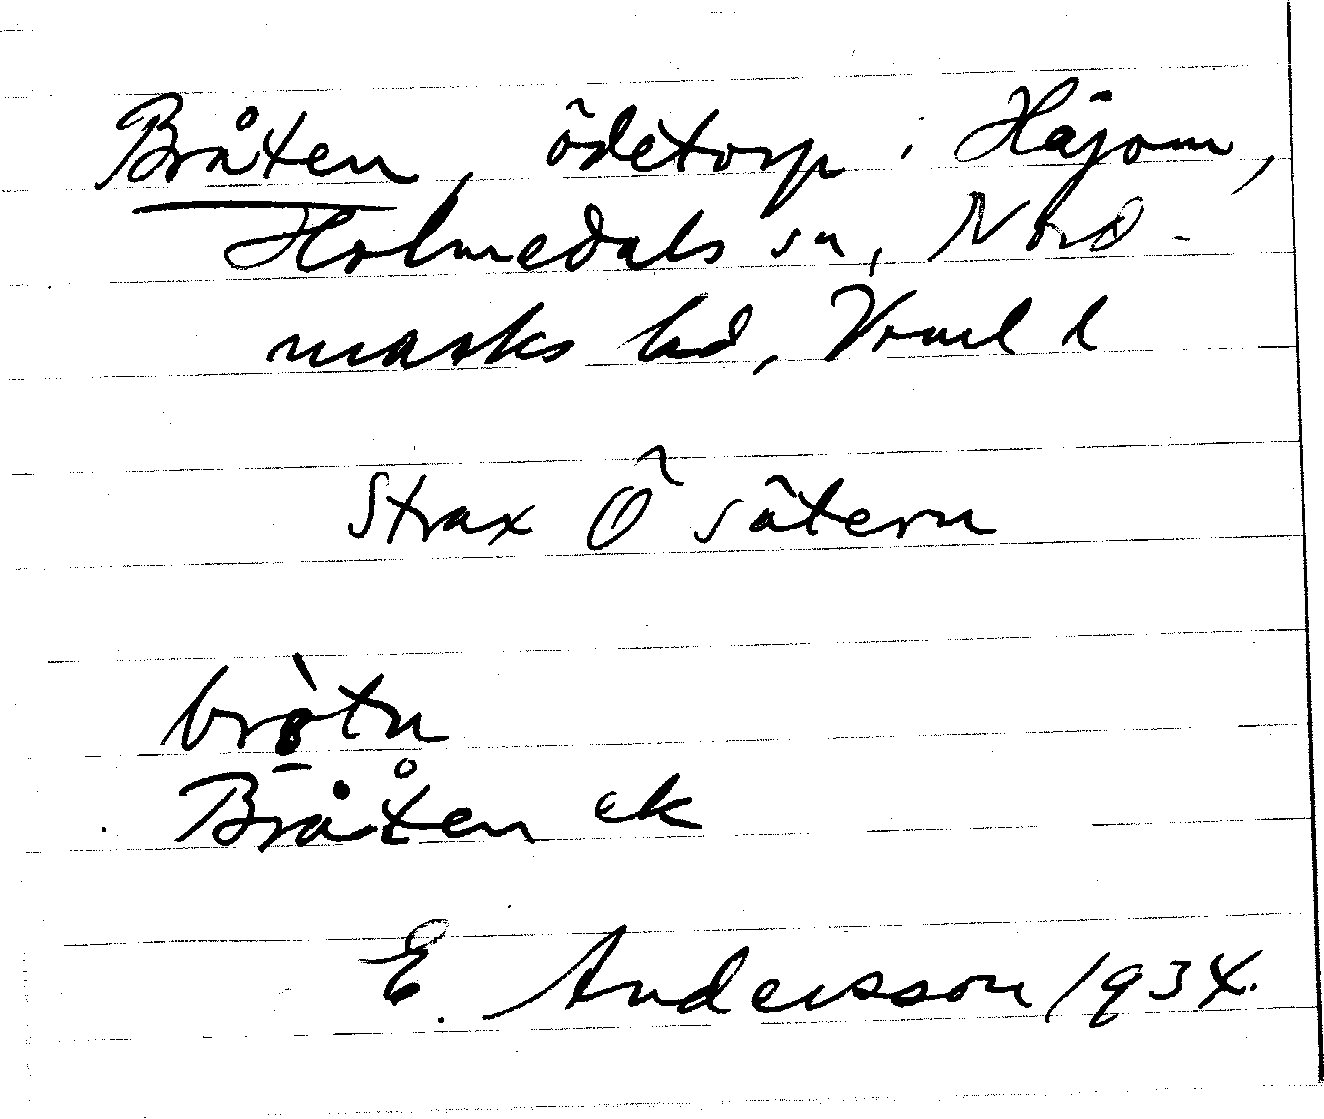 Bråten, ödetorp i Häjom,
Holmedals sn, Nord-
marks hd, Vrml l
Strax Ö sätern
brȯ̱̀tn
Bråten ek
E. Andersson 1934.